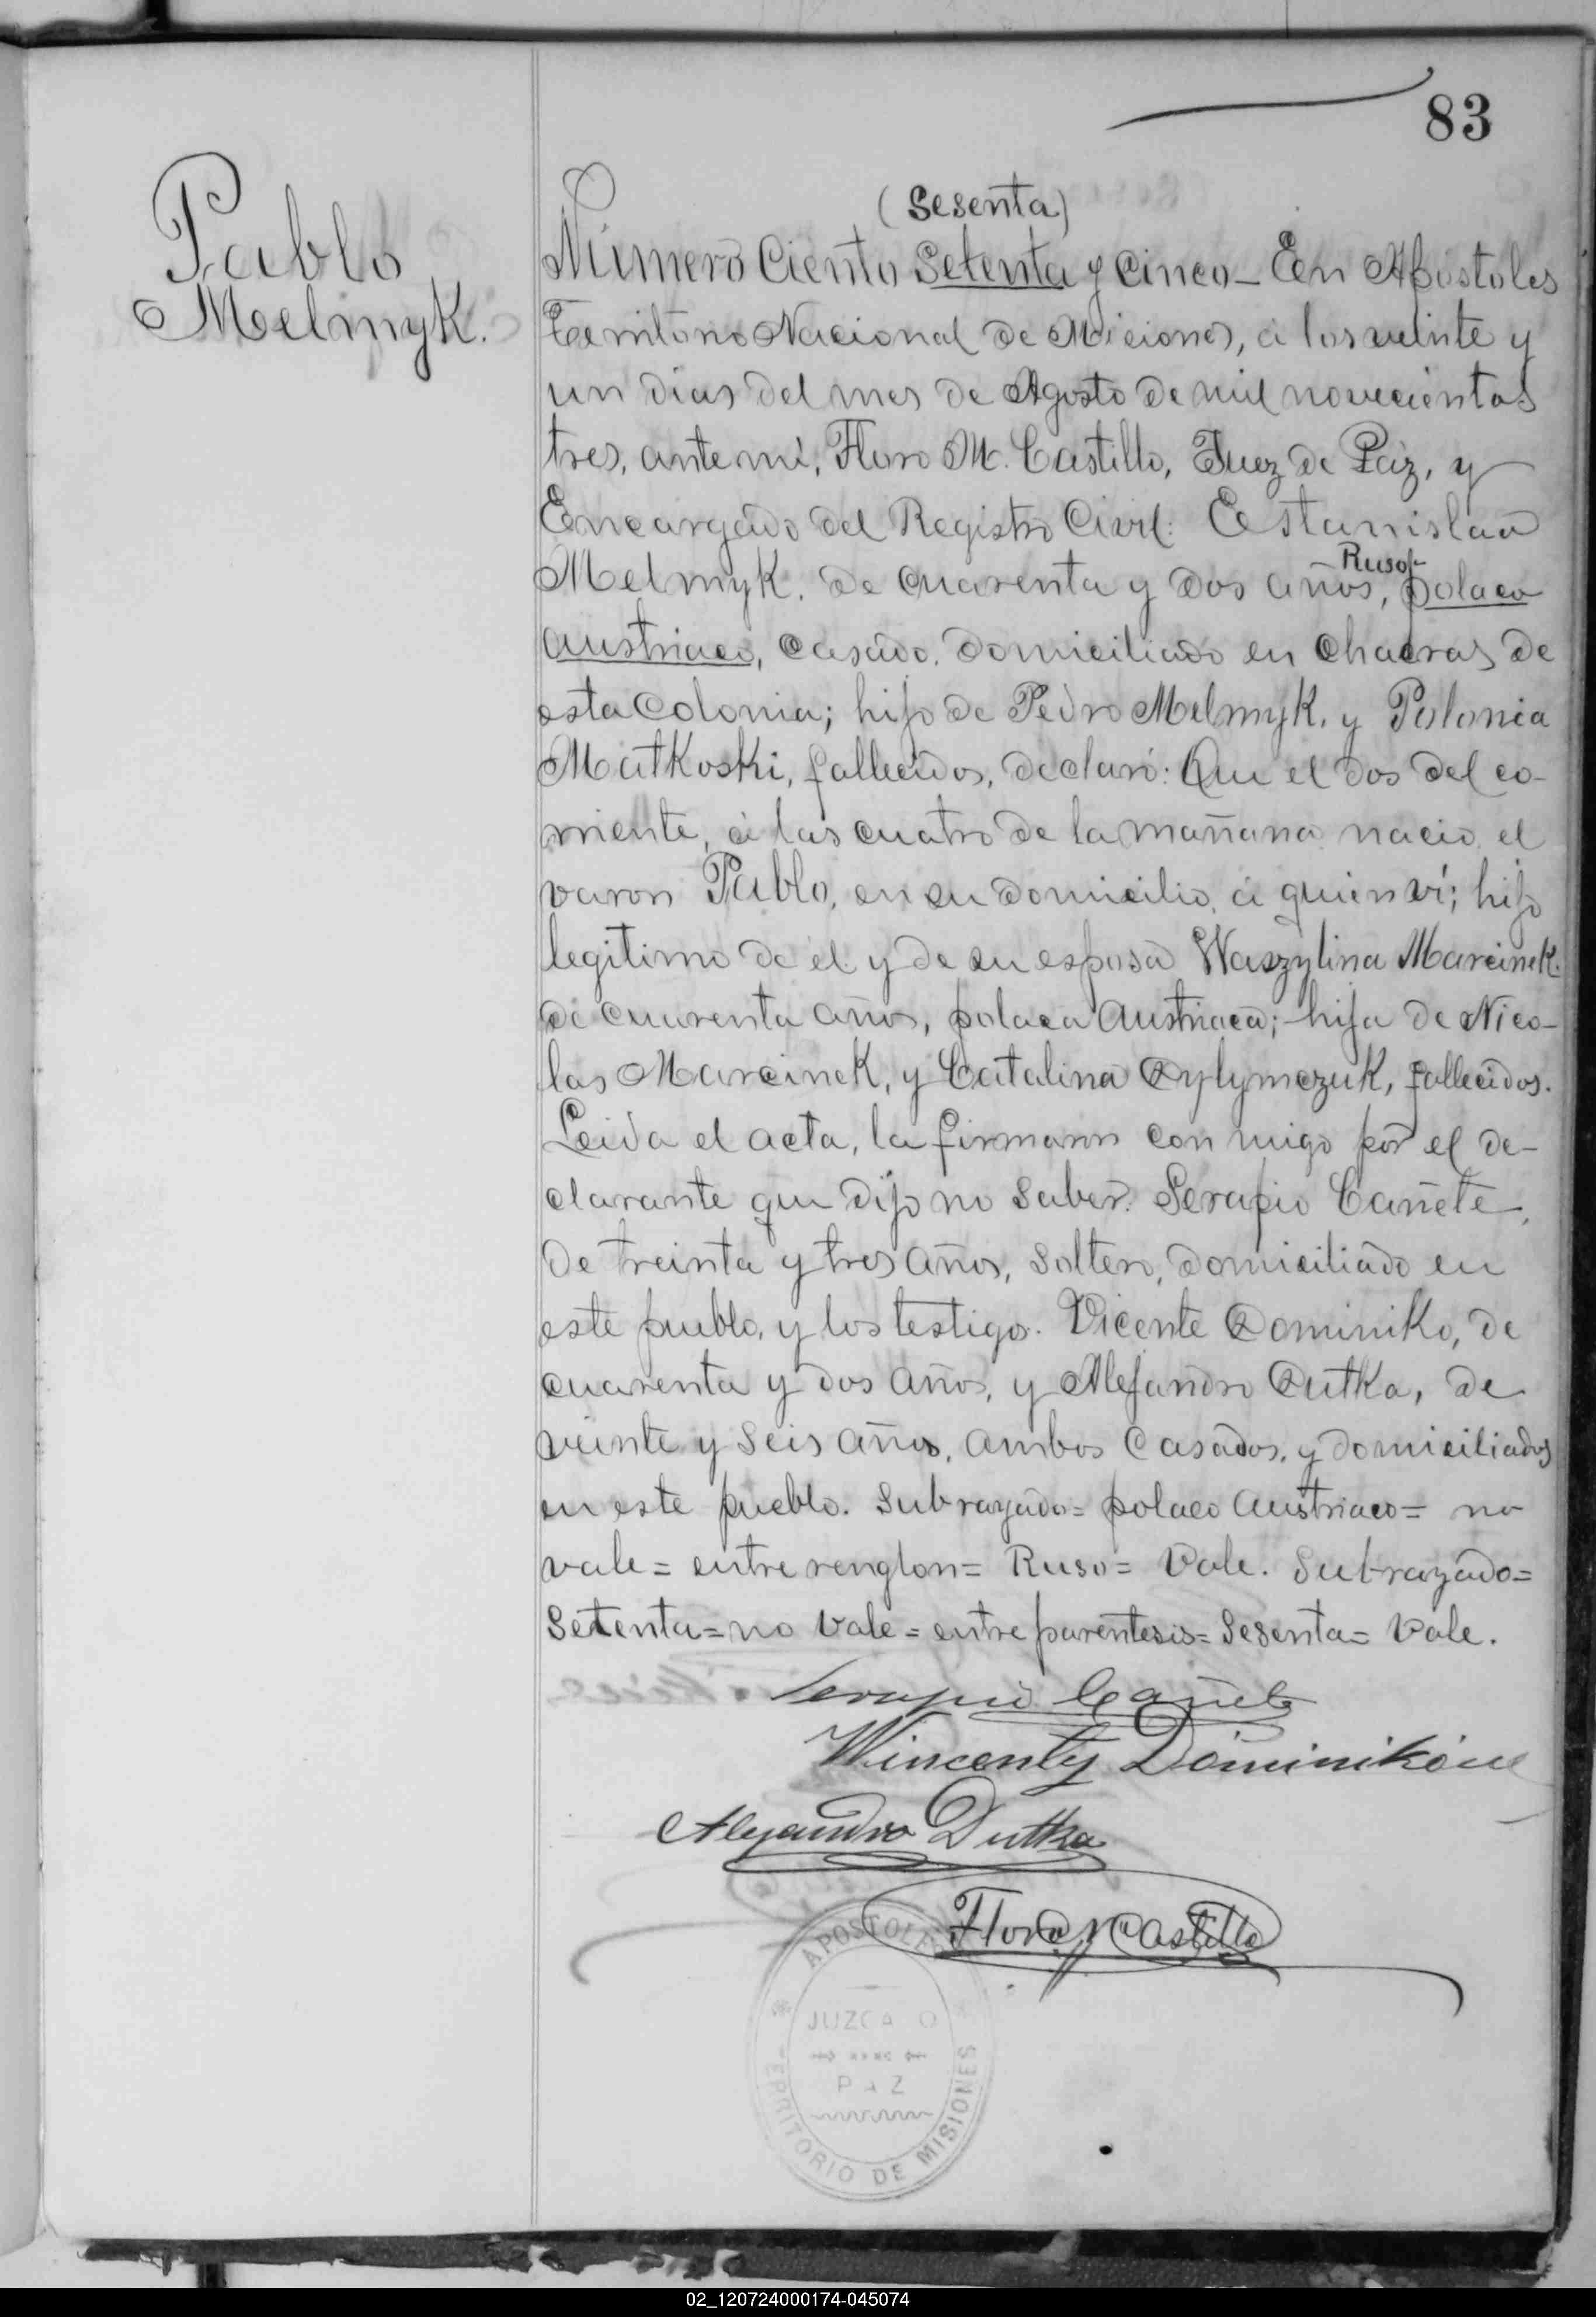 83
Pablo
Melmyk.
(Sesenta)
Número Ciento Setenta y Cinco_ En Apóstoles
Territorio Nacional de Miciones, á los veinte y
un dias del mes de Agosto de mil novecientos
tres, ante mí, Floro M. Castillo, Juez de Paz, y
Encargado del Registro Civil: Estanislao
Ruso
Melmyk. de cuarenta y dos años, polaco
austriaco, casado. domiciliado en chacras de
esta Colonia; hijo de Pedro Melmyk. y Polonia
Matkoski, fallecidos, declaró: Que el dos del co-
rriente, á las cuatro de la mañana nacio el
varon Pablo, en su domicilio, á quien ví; hijo
legitimo de él y de su esposa Waszylina Marcinek.
de cuarenta años, polaca austriaca; hija de Nico-
las Marcinek, y Catalina Dylymczuk, fallecidos.
Leida el acta, la firmaron con migo por el de-
clarante que dijo no saber. Serapio Cañete,
de treinta y tres años, soltero, domiciliado en
este pueblo, y los testigos. Vicente Dominiko, de
cuarenta y dos años, y Alejandro Dutka, de
veinte y seis años, ambos casados, y domiciliados
en este pueblo. Subrayado= polaco austriaco= no
vale= entre renglon= Ruso= Vale. Subrayado=
Setenta= no vale= entre parentesis= Sesenta= Vale.
Serapio Cañete
Wincenty
Alejandro Dutka
Floro M Castillo
APOSTOLES
JUZGADO
PAZ
TERRITORIO DE MISIONES
02_120724000174-045074